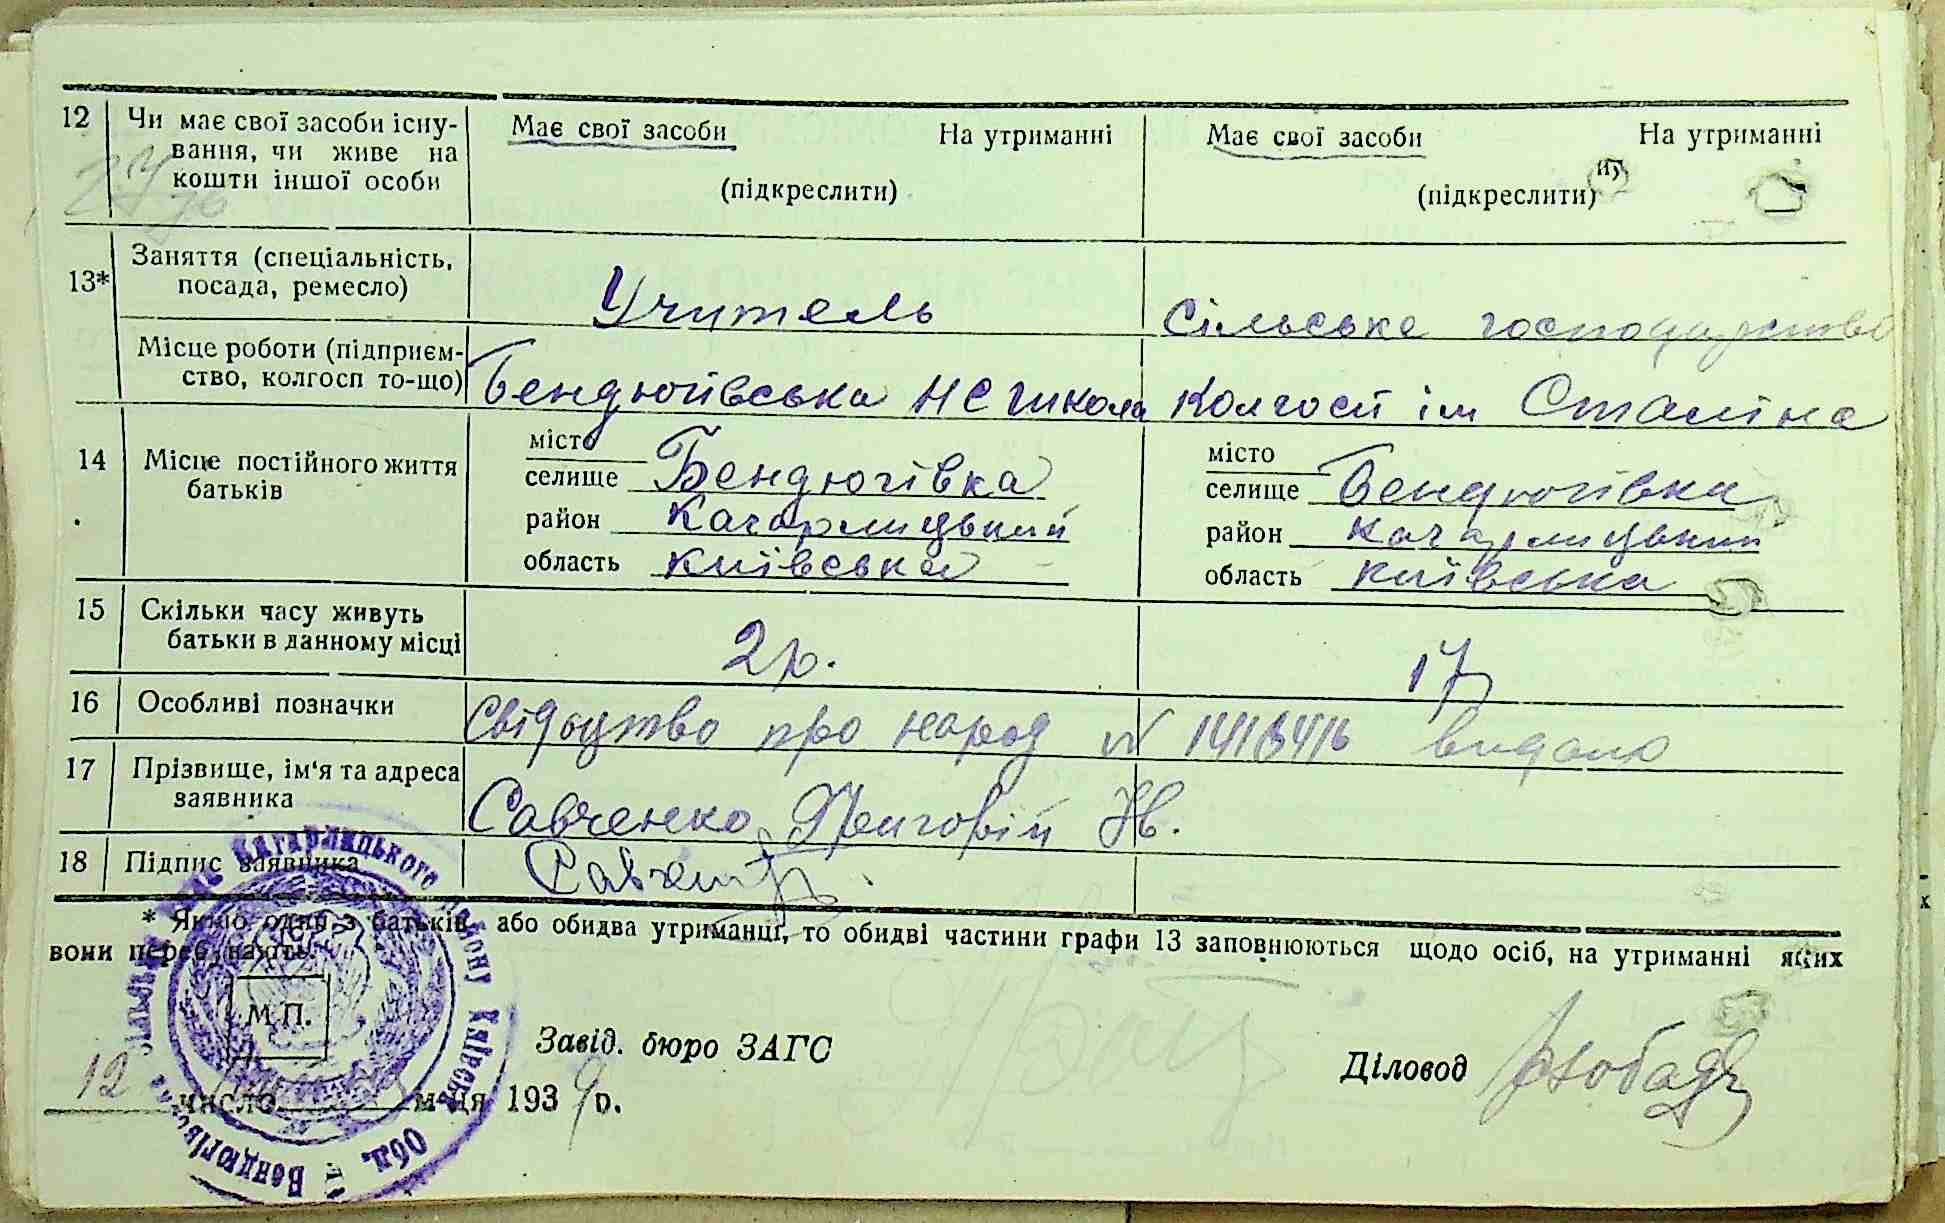 12 Чи має свої засоби існу- Має свої засоби На утриманні Має свої засоби На утриманні
вання, чи живе на
кошти іншої особи (підкреслити) (підкреслити)
13* Заняття (спеціальність,
посада, ремесло) Учитель Сільське господарство
Місце роботи (підприєм-
ство, колгосп то-що) Бендюгівська НСШкола Колгосп ім Сталіна
14 Місце постійного життя
батьків
місто місто
селище Бендюгівка селище Бендюгівка
район Кагарлицький район Кагарлицький
область Київська область Київська
15 Скільки часу живуть
батьки в данному місці 2 р. 17
16 Особливі позначки Свідоцтво про народ № видано
17 Прізвище, ім'я та адреса
заявника Савченко Григорій Ів.
18 Підпис заявника
* Якщо один з батьків, або обидва утриманці, то обидві частини графи 13 заповнюються щодо осіб, на утриманні яких
вони перебувають.
М.П.
Завід. бюро ЗАГС
Діловод
12 число м-ця 1939 р.
Кагарлицького району Київської Обл. Бендюгівська